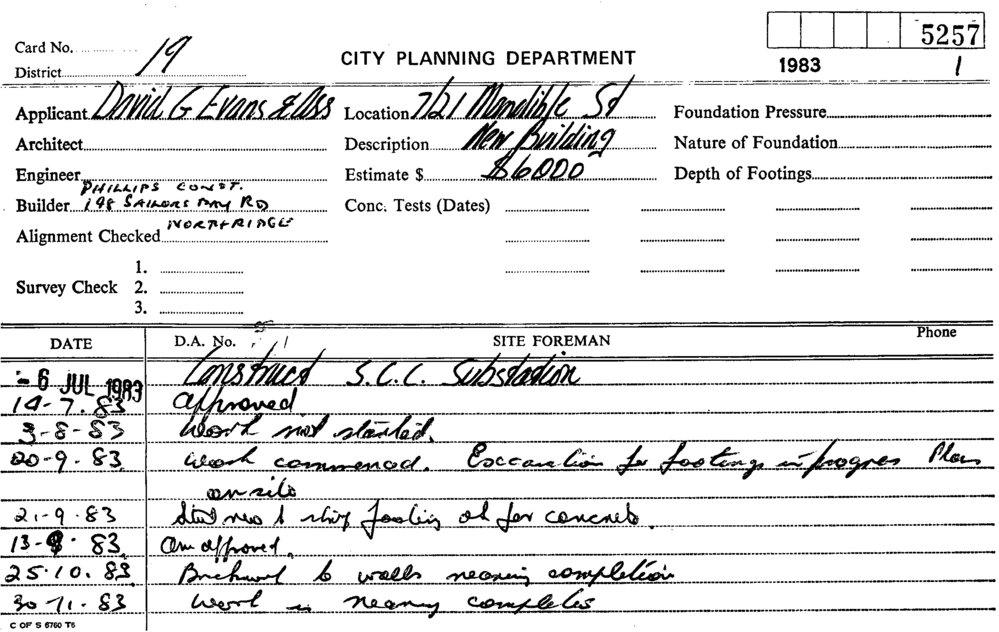 5257
Card No. 19
CITY PLANNING DEPARTMENT
District
1983 1
Applicant David G Evans & Ass Location 7/21 Mandible St Foundation Pressure
Architect Description New Building Nature of Foundation
Engineer Estimate $ $6000 Depth of Footings
PHILLIPS CONST.
Builder 198 SAILORS BAY RD Conc. Tests (Dates)
NORTHBRIDGE
Alignment Checked
1.
Survey Check 2.
3.
DATE D.A. No. SITE FOREMAN Phone
- 6 JUL 1983 Construct S.C.C. Substation
14-7.83 approved
3-8-83 Work not started.
20-9.83 Work commenced. Excavation for footings in progress Plans
on site
21-9.83 footing ok for concrete.
83 approved.
25.10.83 Brickwork to walls nearing completion
30-11.83 Work is nearing complete
C OF S 6760 T6